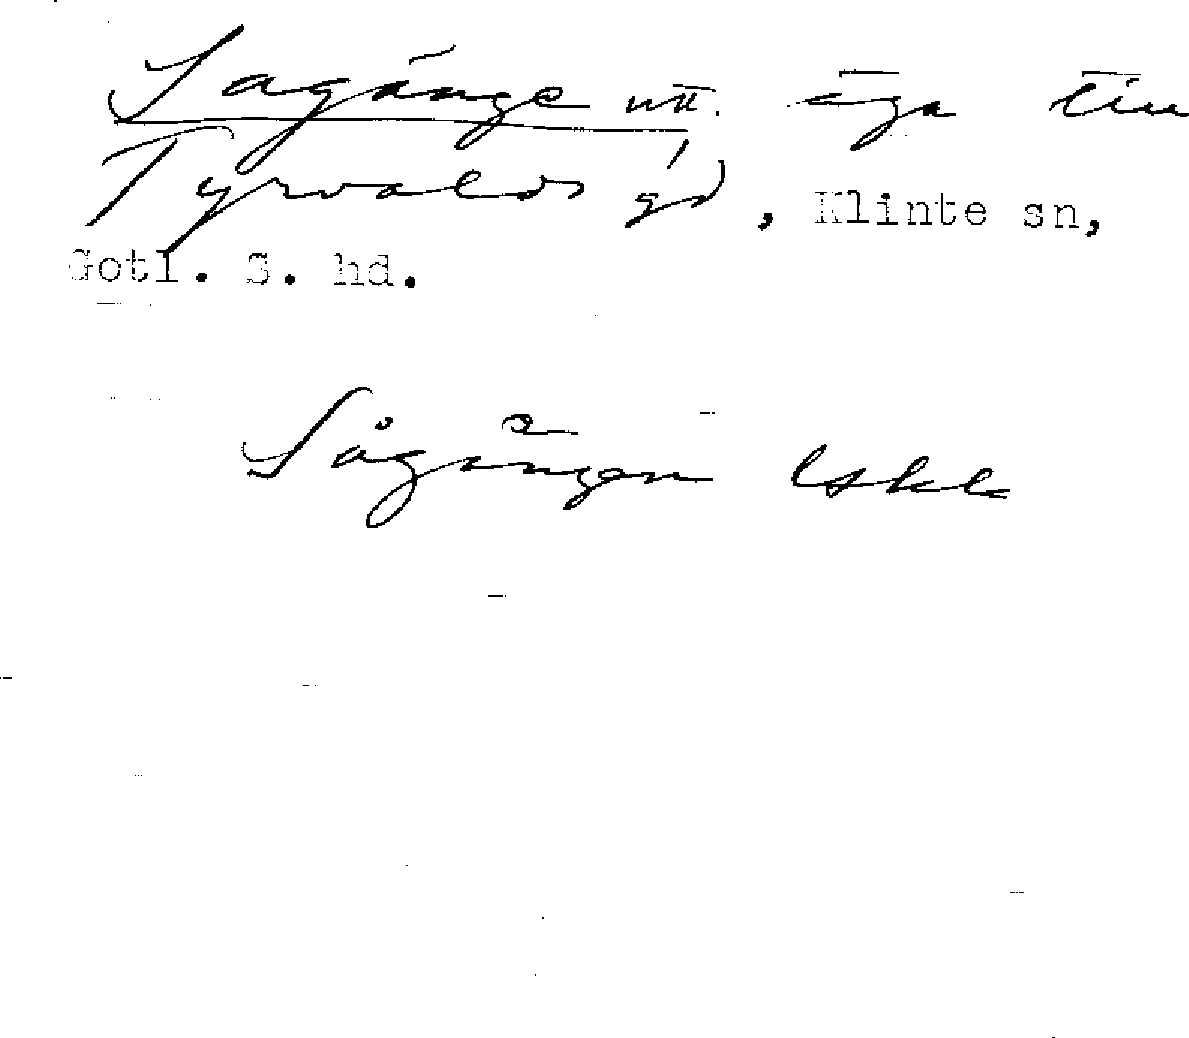 Sagänge utt. äga till
Tyrvalds gd, Klinte sn,
Gotl. S. hd.
Sågången Lskk